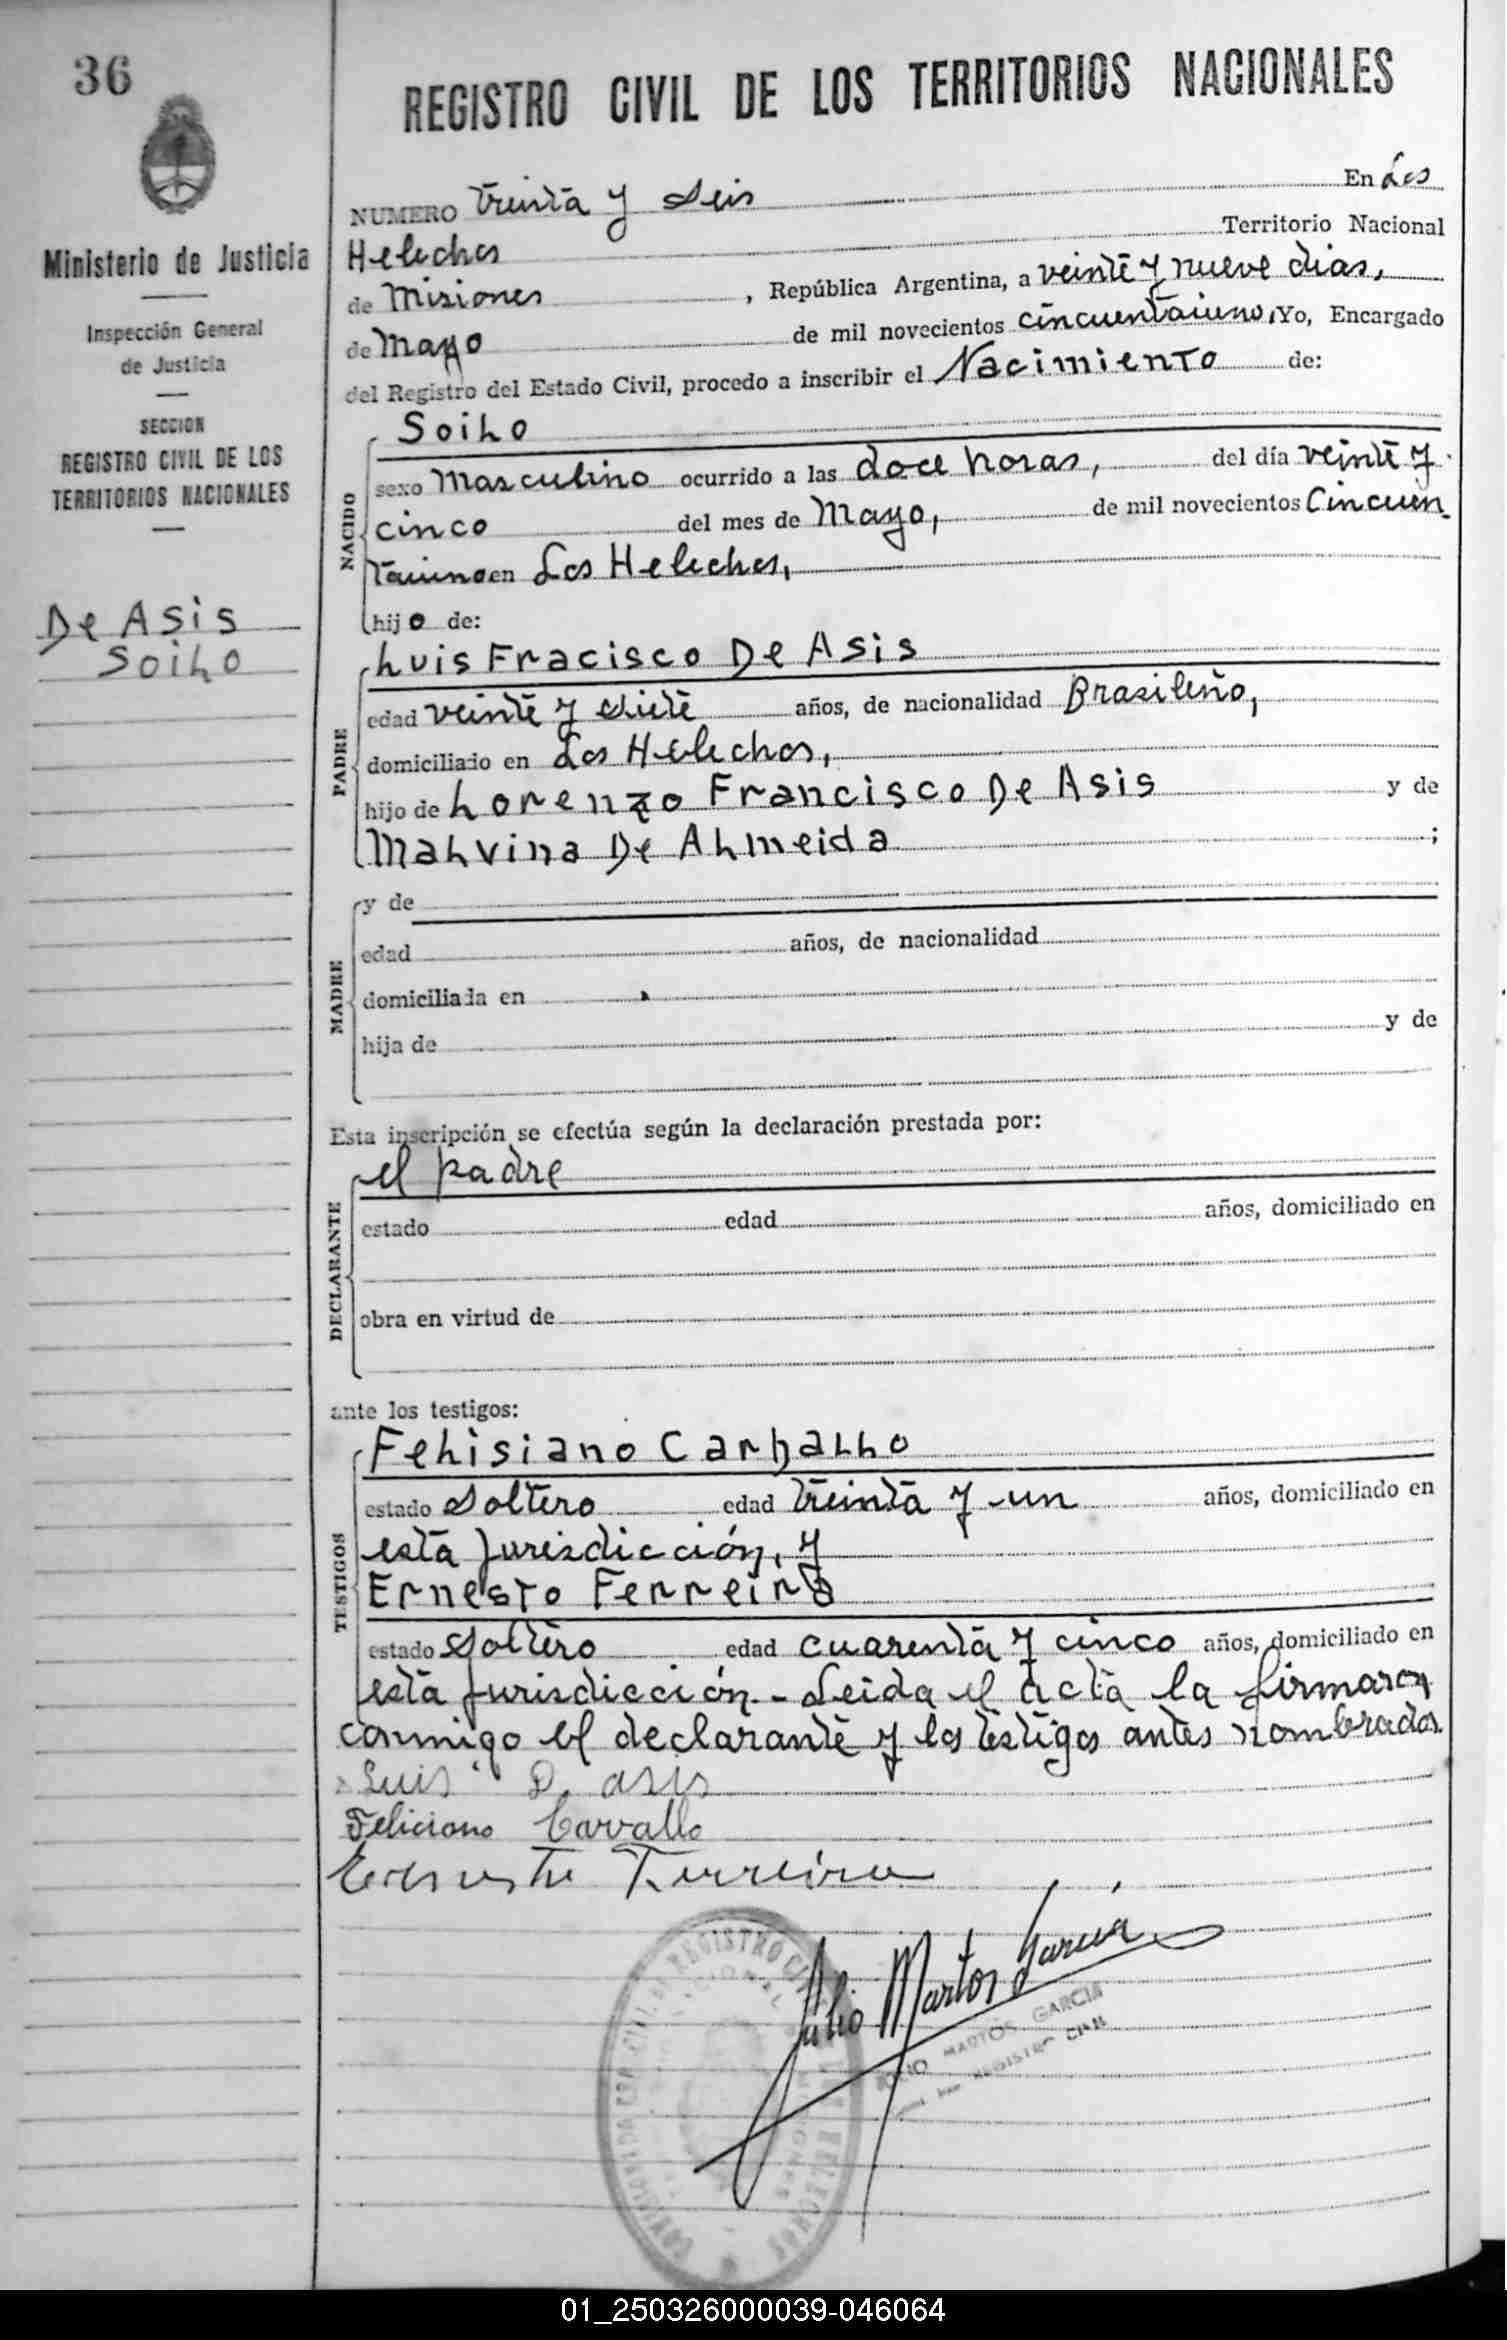 36
REGISTRO CIVIL DE LOS TERRITORIOS NACIONALES
Ministerio de Justicia
Inspección General
de Justicia
SECCION
REGISTRO CIVIL DE LOS
TERRITORIOS NACIONALES
De Asis
Soilo
NUMERO treinta y seis En Los
Helechos Territorio Nacional
de Misiones , República Argentina, a veinte y nueve dias,
de Mayo de mil novecientos cincuentaiuno, Yo, Encargado
del Registro del Estado Civil, procedo a inscribir el Nacimiento de:
NACIDO
Soilo
sexo Masculino ocurrido a las doce horas, del día veinte y
cinco del mes de Mayo, de mil novecientos Cincuen
taiuno en Los Helechos,
hijo de:
PADRE
Luis Fracisco De Asis
edad veinte y siete años, de nacionalidad Brasileño,
domiciliado en Los Helechos,
hijo de Lorenzo Francisco De Asis y de
Malvina De Almeida ;
MADRE
y de
edad años, de nacionalidad
domiciliada en
hija de y de
Esta inscripción se efectúa según la declaración prestada por:
DECLARANTE
el padre
estado edad años, domiciliado en
obra en virtud de
ante los testigos:
TESTIGOS
Felisiano Carballo
estado Soltero edad treinta y un años, domiciliado en
esta jurisdicción, y
Ernesto Ferreiro
estado Soltero edad cuarenta y cinco años, domiciliado en
esta jurisdicción.- Leida el acta la firmaron
conmigo el declarante y los testigos antes nombrados.
Luis D. asis
Feliciano Carvallo
Ernesto Ferreira
Julio Martos Garcia
JULIO MARTOS GARCIA
REGISTRO CIVIL
01_250326000039-046064